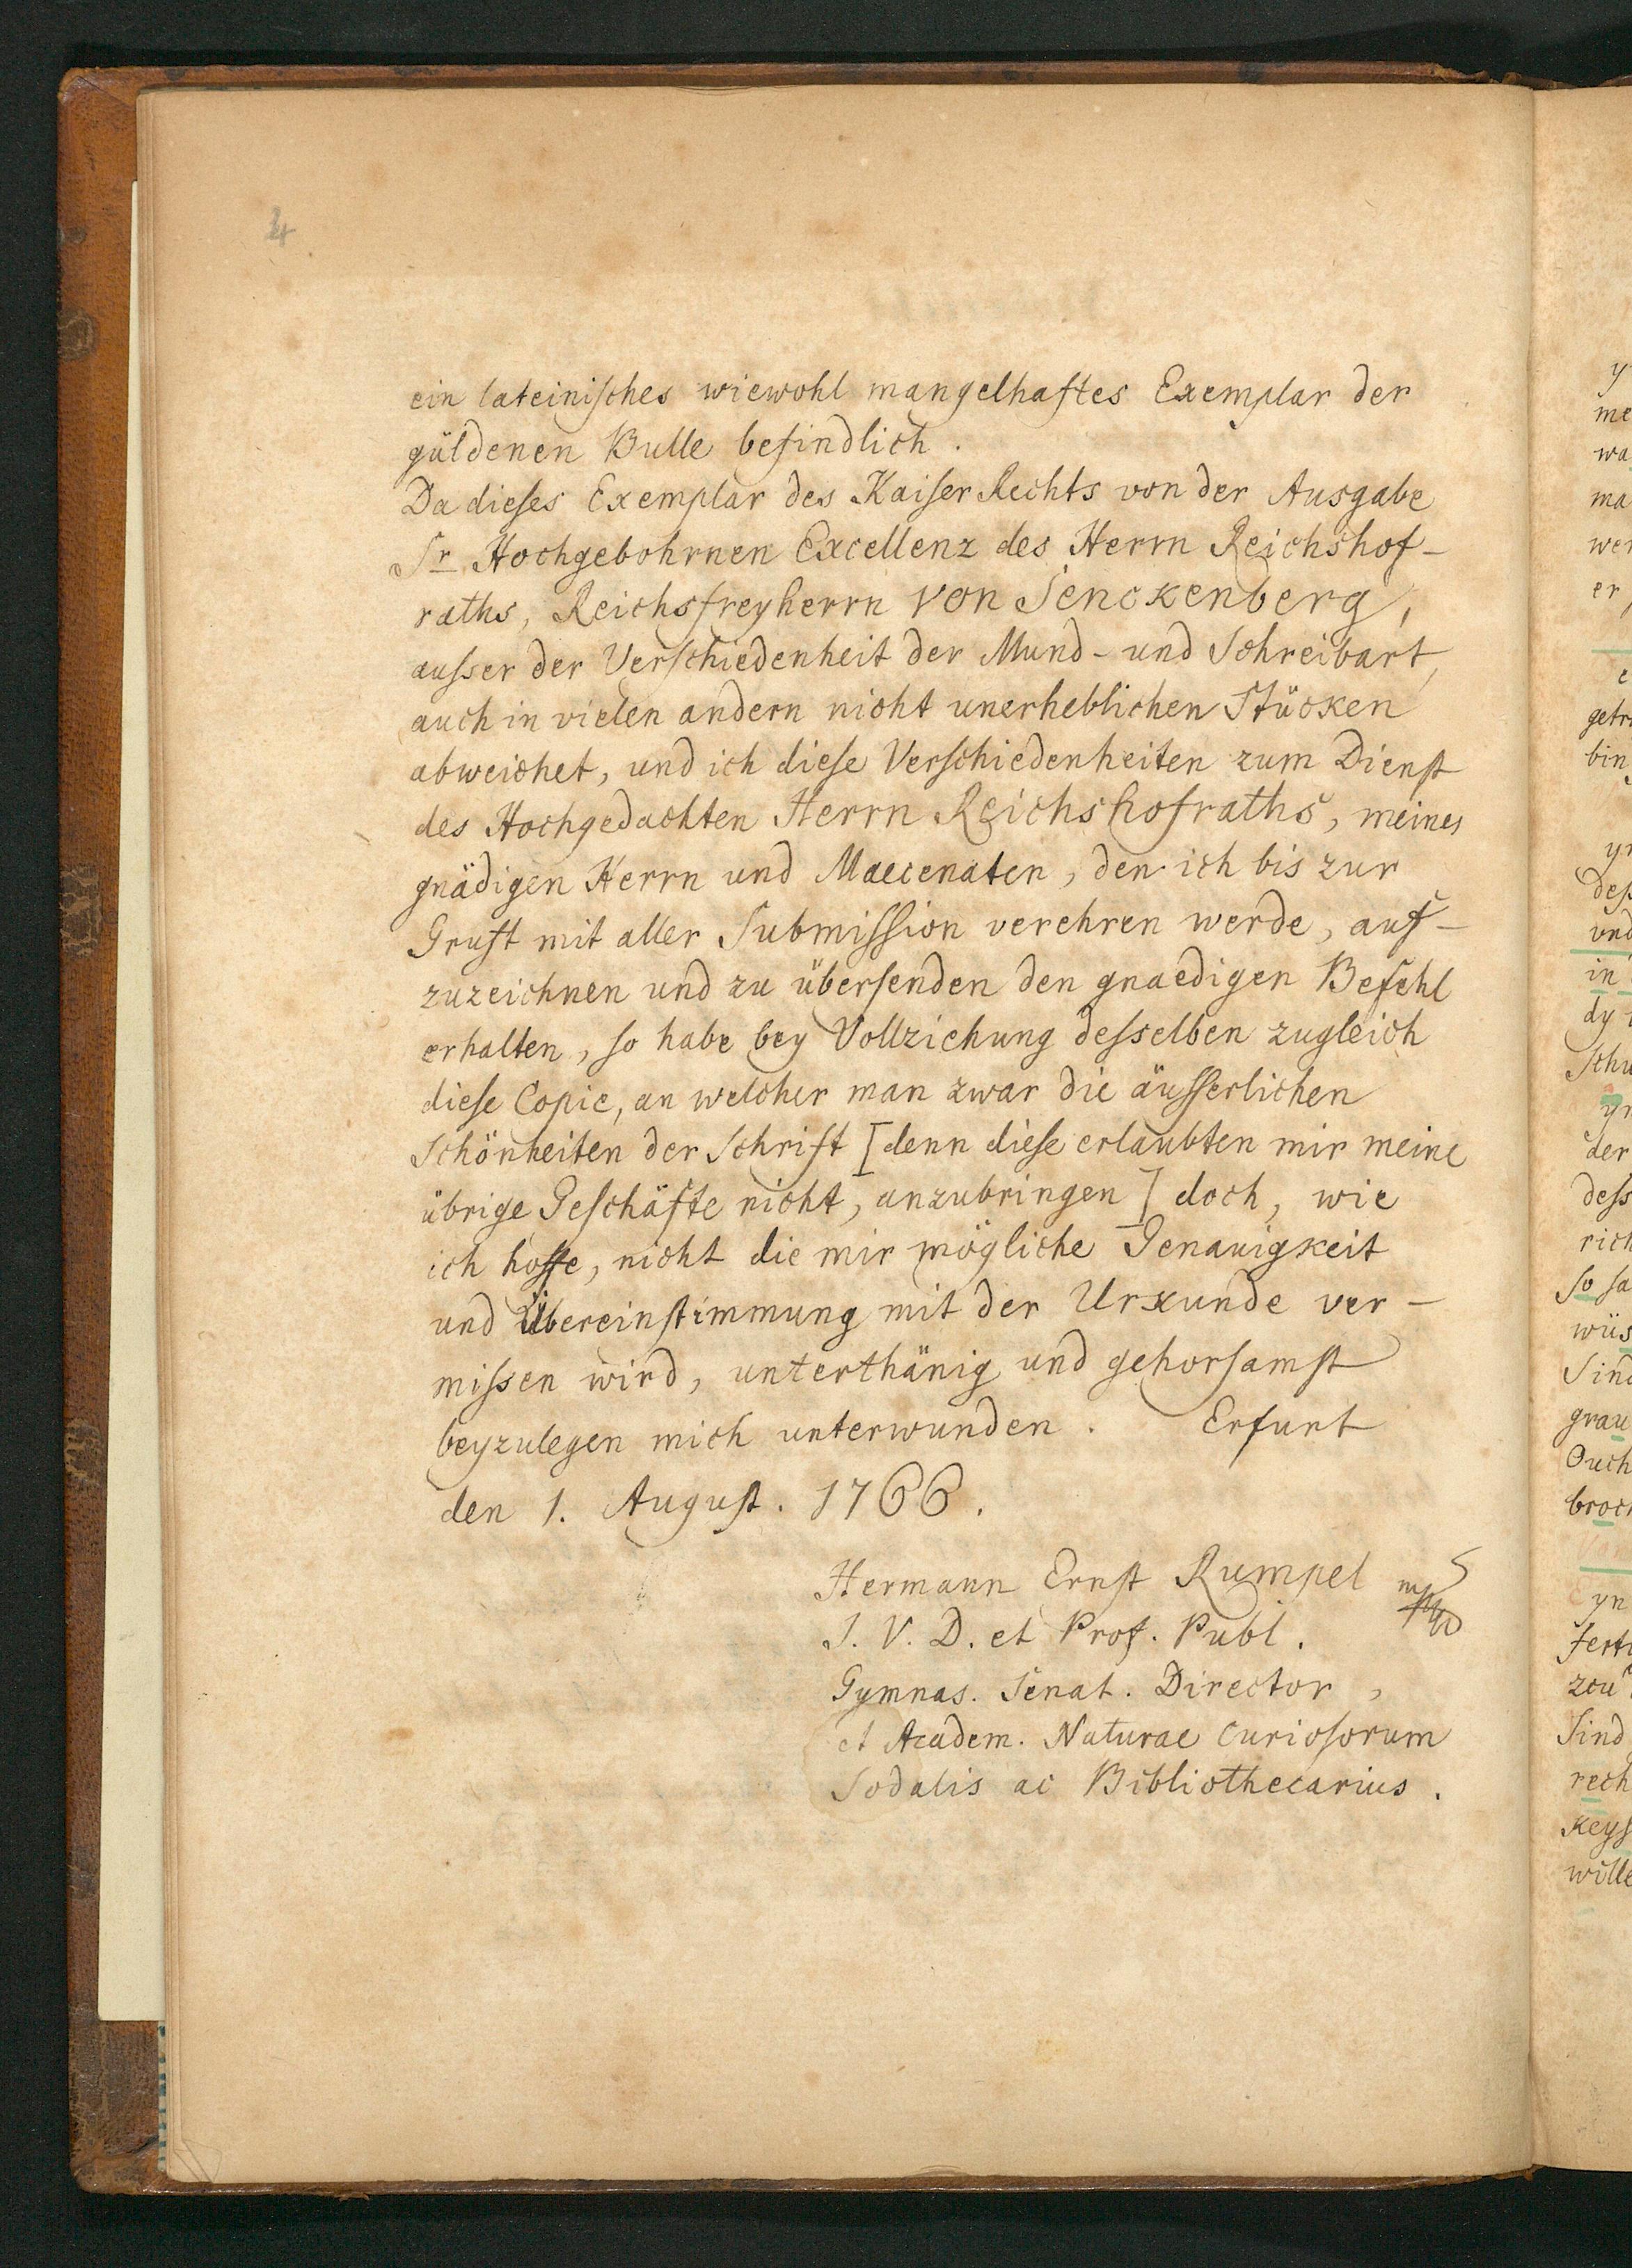 4
ein lateiniſches wiewohl mangelhaftes Exemplar der
güldenen Bulle befindlich.
Da dieſes Exemplar des Kaiſer Rechts von der Ausgabe
Sr. Hochgebohrnen Excellenz des Herrn Reichshof-
raths, Reichsfreyherrn von Senckenberg,
auſser der Verſchiedenheit der Mund- und Schreibart,
auch in vielen andern nicht unerheblichen Stücken
abweichet, und ich dieſe Verſchiedenheiten zum Dienſt
des Hochgedachten Herrn Reichshofraths, meines
gnädigen Herrn und Maecenaten, den ich bis zur
Gruft mit aller Submiſſion verehren werde, auf-
zuzeichnen und zu überſenden den gnaedigen Befehl
erhalten, ſo habe bey Vollziehung deſselben zugleich
dieſe Copie, an welcher man zwar die äuſſerlichen
Schönheiten der Schrift [denn dieſe erlaubten mir meine
übrige Geſchäfte nicht, anzubringen] doch, wie
ich hoffe, nicht die mir mögliche Genauigkeit
und Übereinſtimmung mit der Urkunde ver-
miſsen wird, unterthänig und gehorſamſt
beyzulegen mich unterwunden. Erfurt
den 1. Auguſt. 1766.
Hermann Ernſt Rumpel mpp
J. V. D. et Prof. Publ.
Gymnas. Senat. Director,
et Academ. Naturae Curioſorum
Sodalis ac Bibliothecarius.